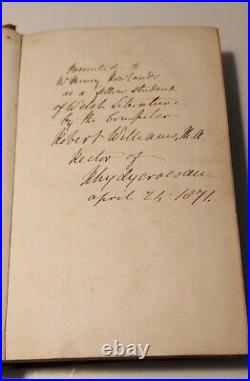 Presented to
Mr Henry Rowlands,
as a fellow student
of Welsh Literature
by the Compiler
Robert Williams, M.A.
Rector of
Rhydycroesau
April 24. 1871.